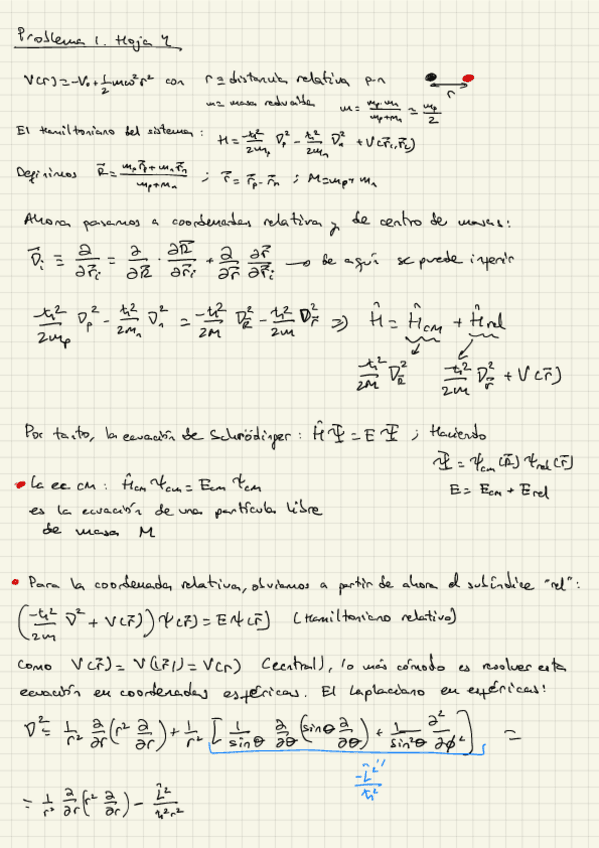 Problema 1. Hoja 4
V(r)=-V₀+½mω²r² con r≡distancia relativa p-n
r
m≡masa reducida m = mp·mn/(mp+mn) ≃ mp/2
El Hamiltoniano del sistema: H = -ħ²/2mp ∇p² - ħ²/2mn ∇n² + V(r⃗₁,r⃗₂)
Definimos R⃗ = (mp r⃗p + mn r⃗n)/(mp+mn) ; r⃗ = r⃗p - r⃗n ; M=mp+mn
Ahora pasamos a coordenadas relativa y de centro de masas:
∇⃗i ≡ ∂/∂r⃗i = ∂/∂R⃗ · ∂R⃗/∂r⃗i + ∂/∂r⃗ ∂r⃗/∂r⃗i → de aquí se puede inferir
-ħ²/2mp ∇p² - ħ²/2mn ∇n² = -ħ²/2M ∇R⃗² - ħ²/2m ∇r⃗² ⇒ Ĥ = Ĥcm + Ĥrel
-ħ²/2M ∇R⃗² -ħ²/2m ∇r⃗² + V(r⃗)
Por tanto, la ecuación de Schrödinger: ĤΨ = EΨ ; Haciendo
Ψ = ψcm(R⃗) ψrel(r⃗)
• La ec CM: Ĥcm ψcm = Ecm ψcm
E = Ecm + Erel
es la ecuación de una partícula libre
de masa M
• Para la coordenada relativa, obviamos a partir de ahora el subíndice "rel":
(-ħ²/2m ∇² + V(r⃗)) ψ(r⃗) = Eψ(r⃗) (Hamiltoniano relativo)
como V(r⃗) = V(|r⃗|) = V(r) (central), lo más cómodo es resolver esta
ecuación en coordenadas esféricas. El laplaciano en esféricas:
∇² = 1/r² ∂/∂r (r² ∂/∂r) + 1/r² [1/sinθ ∂/∂θ (sinθ ∂/∂θ) + 1/sin²θ ∂²/∂ϕ²] =
-L̂²/ħ²
= 1/r² ∂/∂r (r² ∂/∂r) - L̂²/ħ²r²